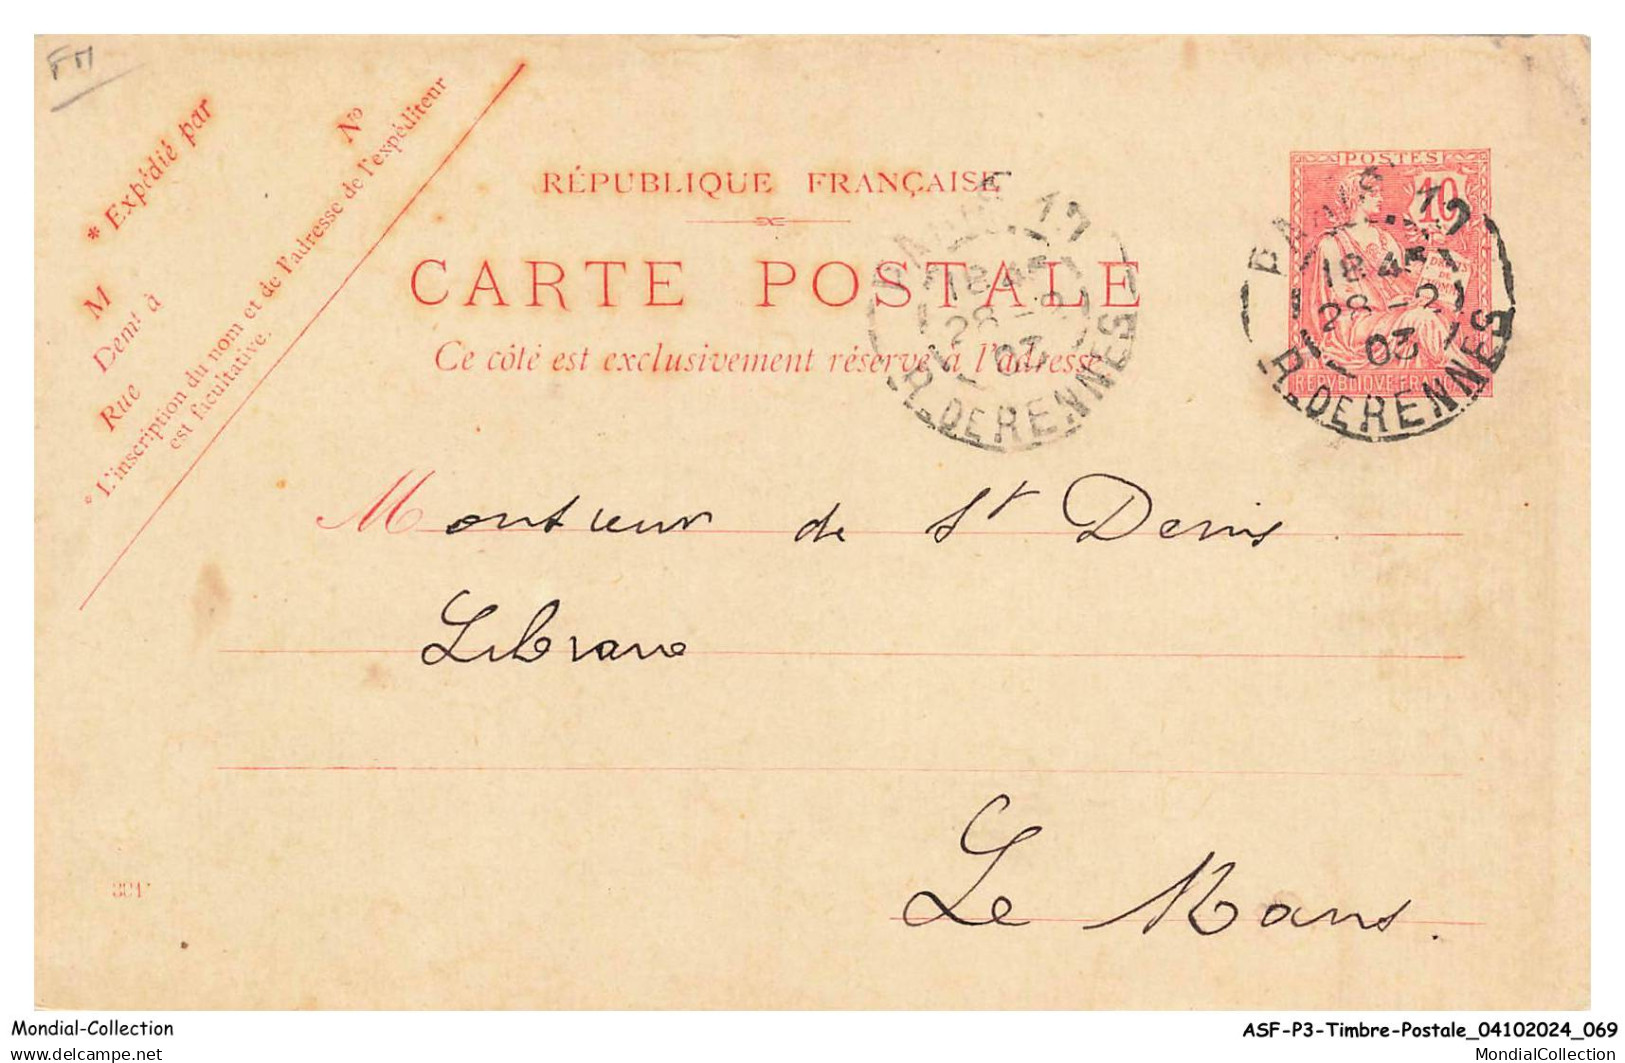 FM
* Expédié par
No
M
Demt à
Rue
* L'inscription du nom et de l'adresse de l'expéditeur
est facultative.
RÉPUBLIQUE FRANÇAISE
CARTE POSTALE
Ce côté est exclusivement réservé à l'adresse
POSTES
10
DROITS
DE
RÉPUBLIQUE FRANÇ
PARIS
18 45
28 - 2
03
R. DE RENNES
PARIS
18 45
28 - 2
03
R. DE RENNES
Monsieur de St Denis
Libraire
Le Mans.
Mondial-Collection
delcampe.net
ASF-P3-Timbre-Postale_04102024_069
MondialCollection